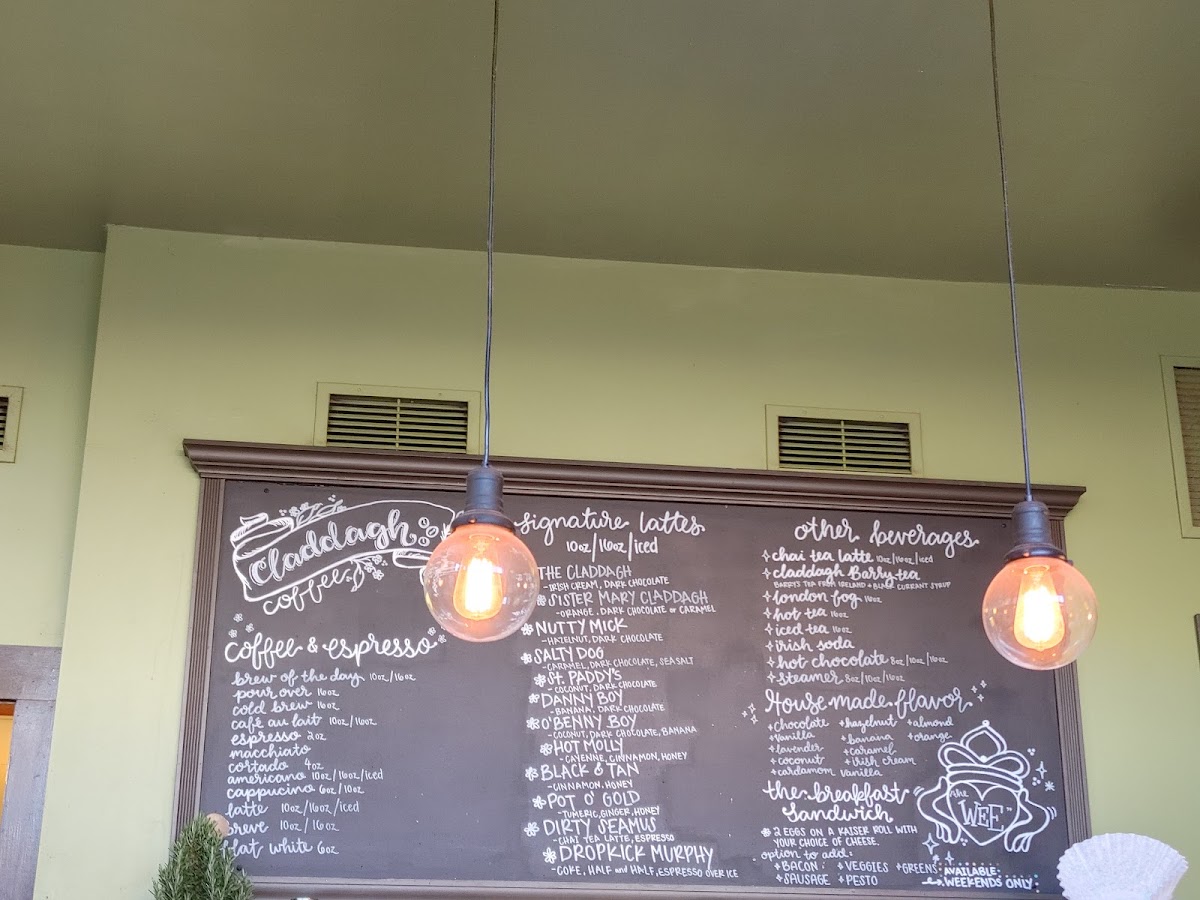 claddagh
coffee
coffee & espresso
brew of the day 10oz/16oz
pour over 16oz
cold brew 16oz
café au lait 10oz/16oz
espresso 2oz
macchiato
cortado 4oz
americano 10oz/16oz/iced
cappuccino 6oz/10oz
latte 10oz/16oz/iced
breve 10oz/16oz
flat white 6oz
signature lattes
10oz/16oz/iced
THE CLADDAGH
-IRISH CREAM, DARK CHOCOLATE
SISTER MARY CLADDAGH
-ORANGE, DARK CHOCOLATE or CARAMEL
NUTTY MICK
-HAZELNUT, DARK CHOCOLATE
SALTY DOG
-CARAMEL, DARK CHOCOLATE, SEA SALT
ST. PADDY'S
-COCONUT, DARK CHOCOLATE
DANNY BOY
-BANANA, DARK CHOCOLATE
O'BENNY BOY
-COCONUT, DARK CHOCOLATE, BANANA
HOT MOLLY
-CAYENNE, CINNAMON, HONEY
BLACK & TAN
-CINNAMON, HONEY
POT O' GOLD
-TUMERIC, GINGER, HONEY
DIRTY SEAMUS
-CHAI TEA LATTE, ESPRESSO
DROPKICK MURPHY
-COKE, HALF and HALF, ESPRESSO OVER ICE
other beverages
chai tea latte 10oz/16oz/iced
claddagh Barry tea
BARRY'S TEA FROM IRELAND + BLACK CURRANT SYRUP
london fog 16oz
hot tea 16oz
iced tea 16oz
irish soda
hot chocolate 8oz/10oz/16oz
steamer 8oz/10oz/16oz
House made flavor
+chocolate +hazelnut +almond
+vanilla +banana +orange
+lavender +caramel
+coconut +irish cream
+cardamom vanilla
the breakfast
sandwich
2 EGGS ON A KAISER ROLL WITH
YOUR CHOICE OF CHEESE.
option to add:
+BACON +VEGGIES +GREENS
+SAUSAGE +PESTO
"the
WEE"
AVAILABLE
WEEKENDS ONLY